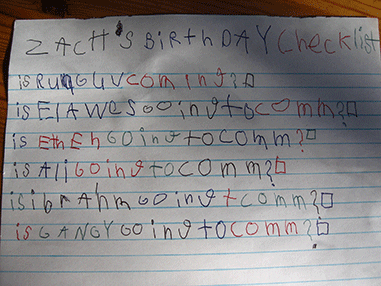 ZACH'S BiRthDAY Checklist
is RUNGUV COM inG?
is EIAWES GO inG tO COMM?
is EthEh GO inG tO COMM?
is Ali GO inG tO COMM?
is ibrAhm GO inG t COMM?
is GANGY GO inG tO COMM?